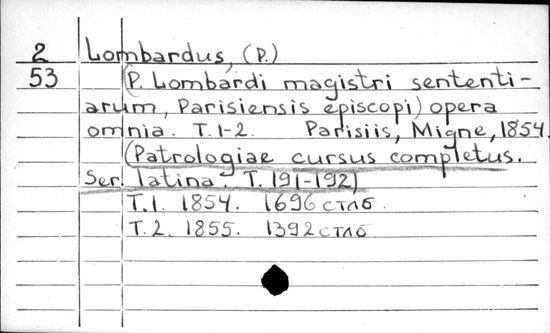 2 Lombardus, (P.)
53 (P. Lombardi magistri sententi-
arum, Parisiensis episcopi) opera
omnia. T. 1-2. Parisiis, Migne, 1854.
(Patrologiae cursus completus.
Ser. latina. T. 191-192)
T. 1. 1854. 1696 стлб.
T. 2. 1855. 1392 стлб